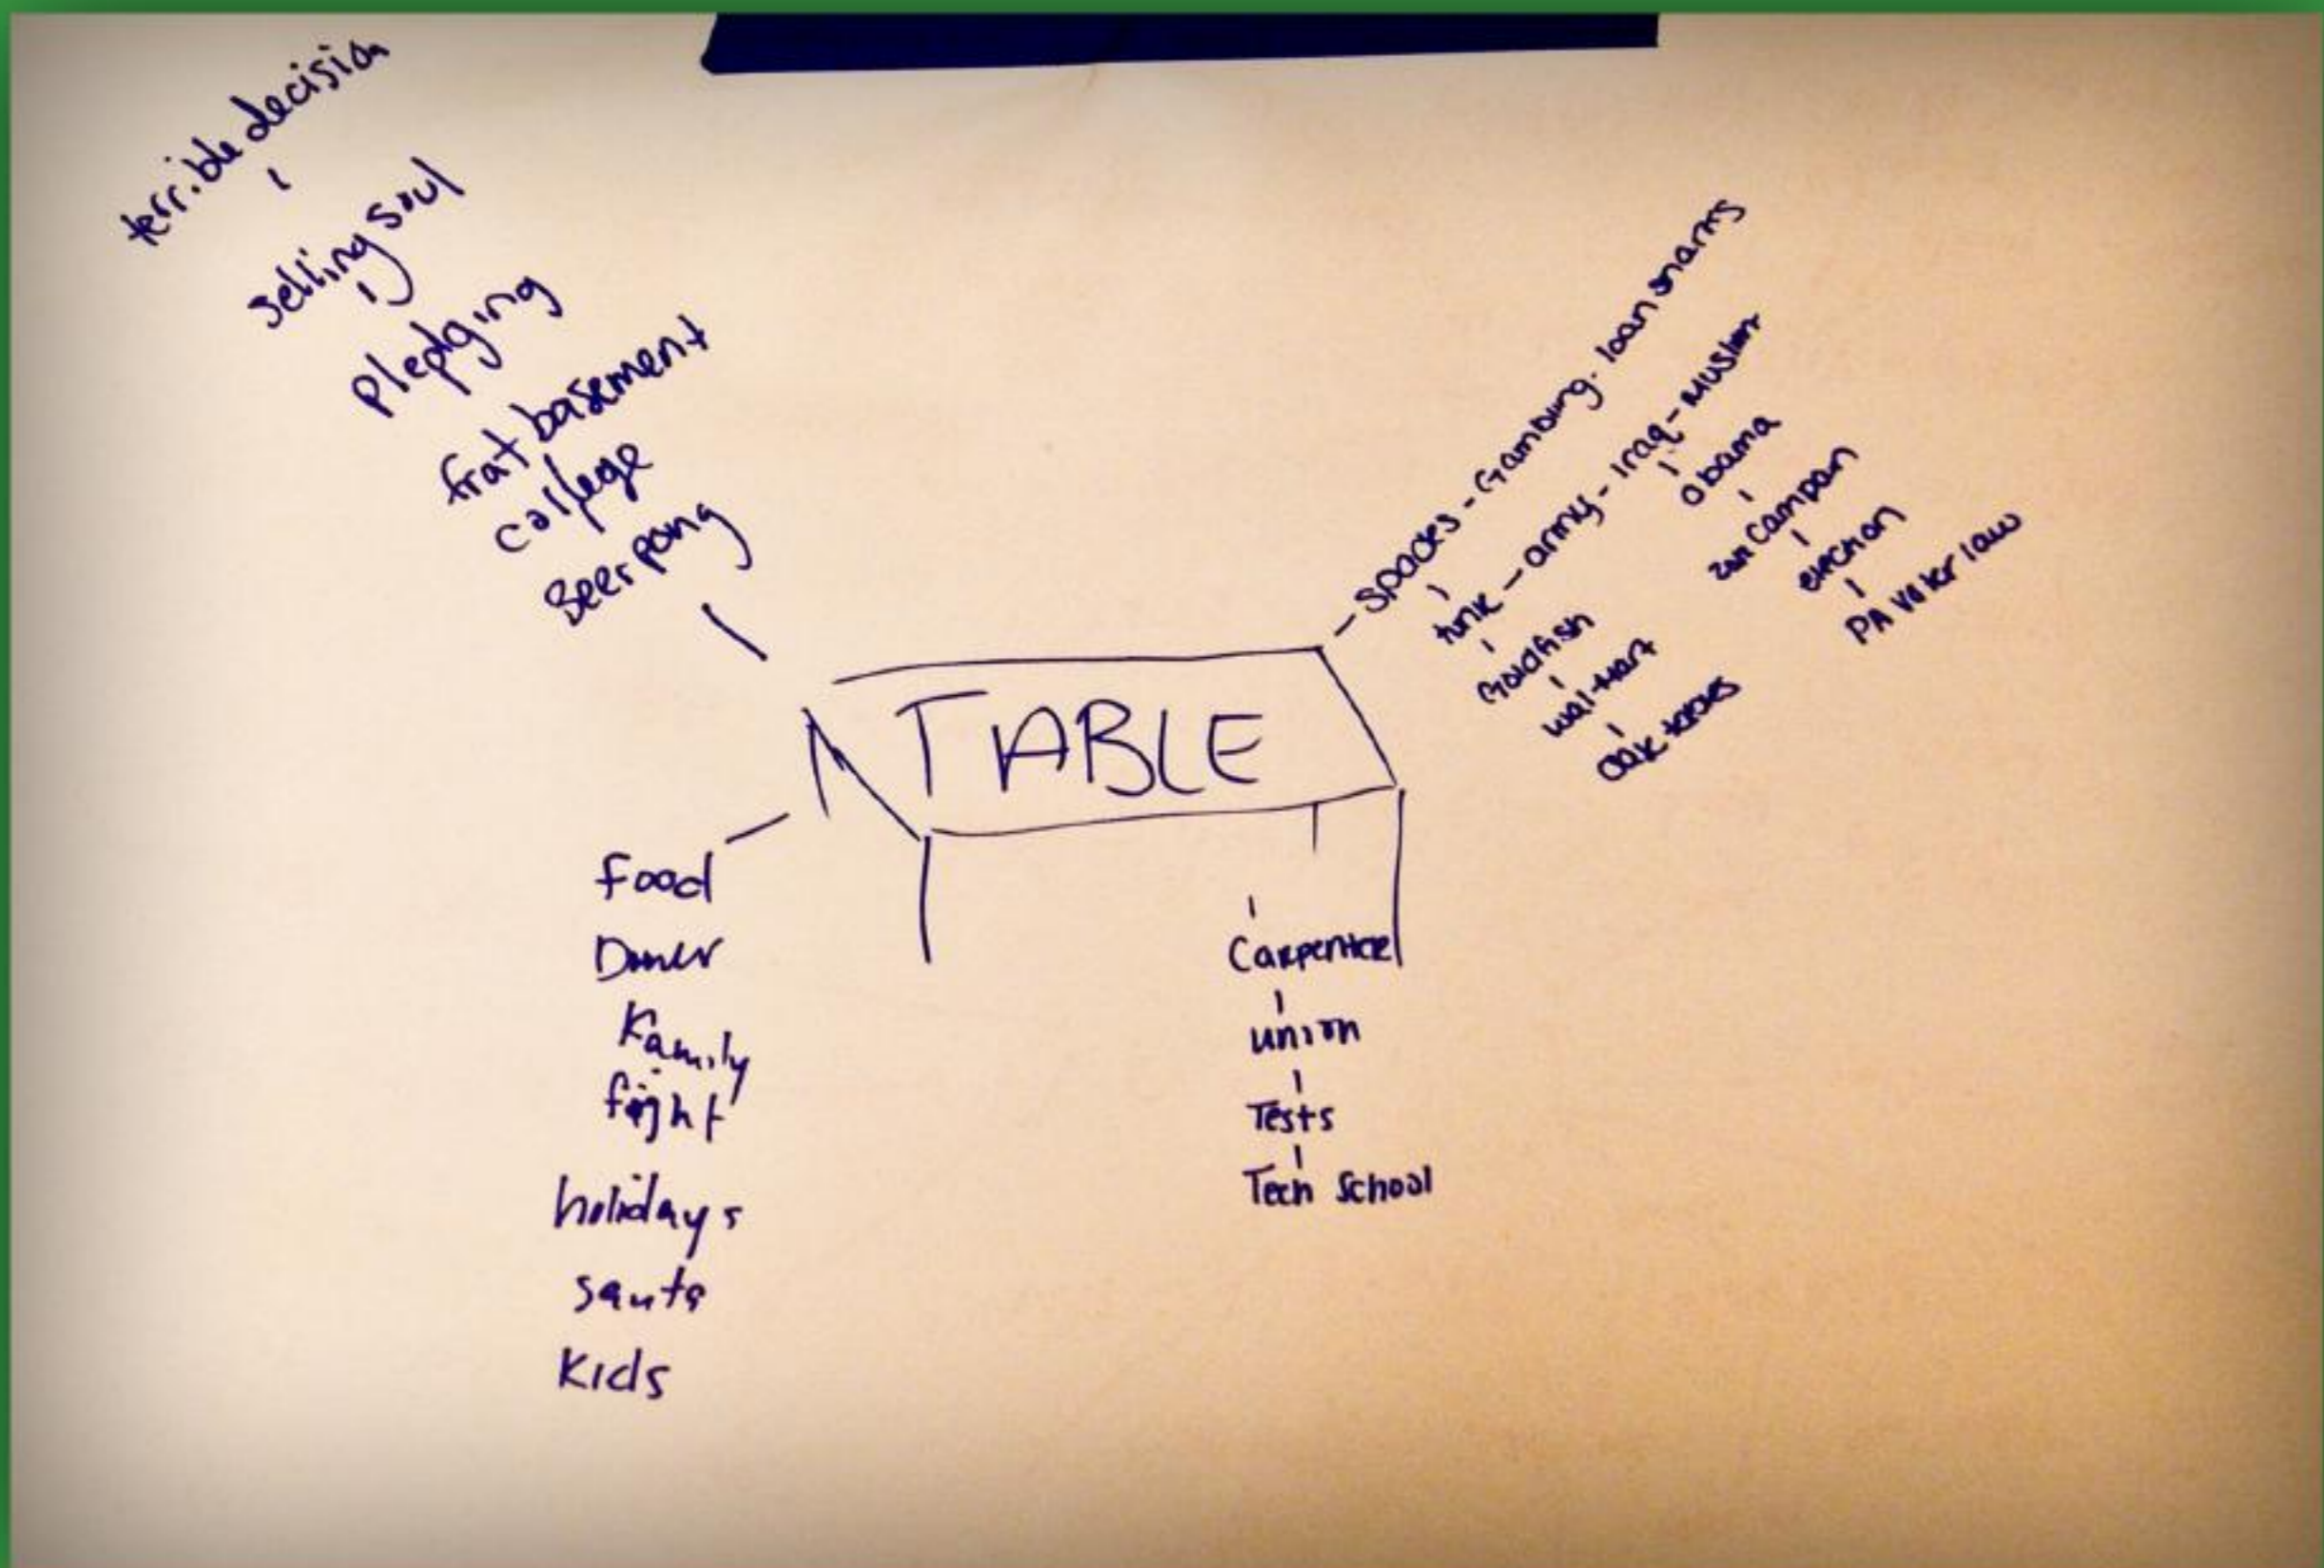 terrible decision
selling soul
pledging
frat basement
college
Beer pong
TABLE
- spades - Gambling. loan sharks
tunk - army - Iraq - Muslim
Obama
campan
election
PA voter law
Goldfish
wal-mart
oak
Food
Dinner
Family
fight
holidays
santa
Kids
Carpenter
union
Tests
Tech School